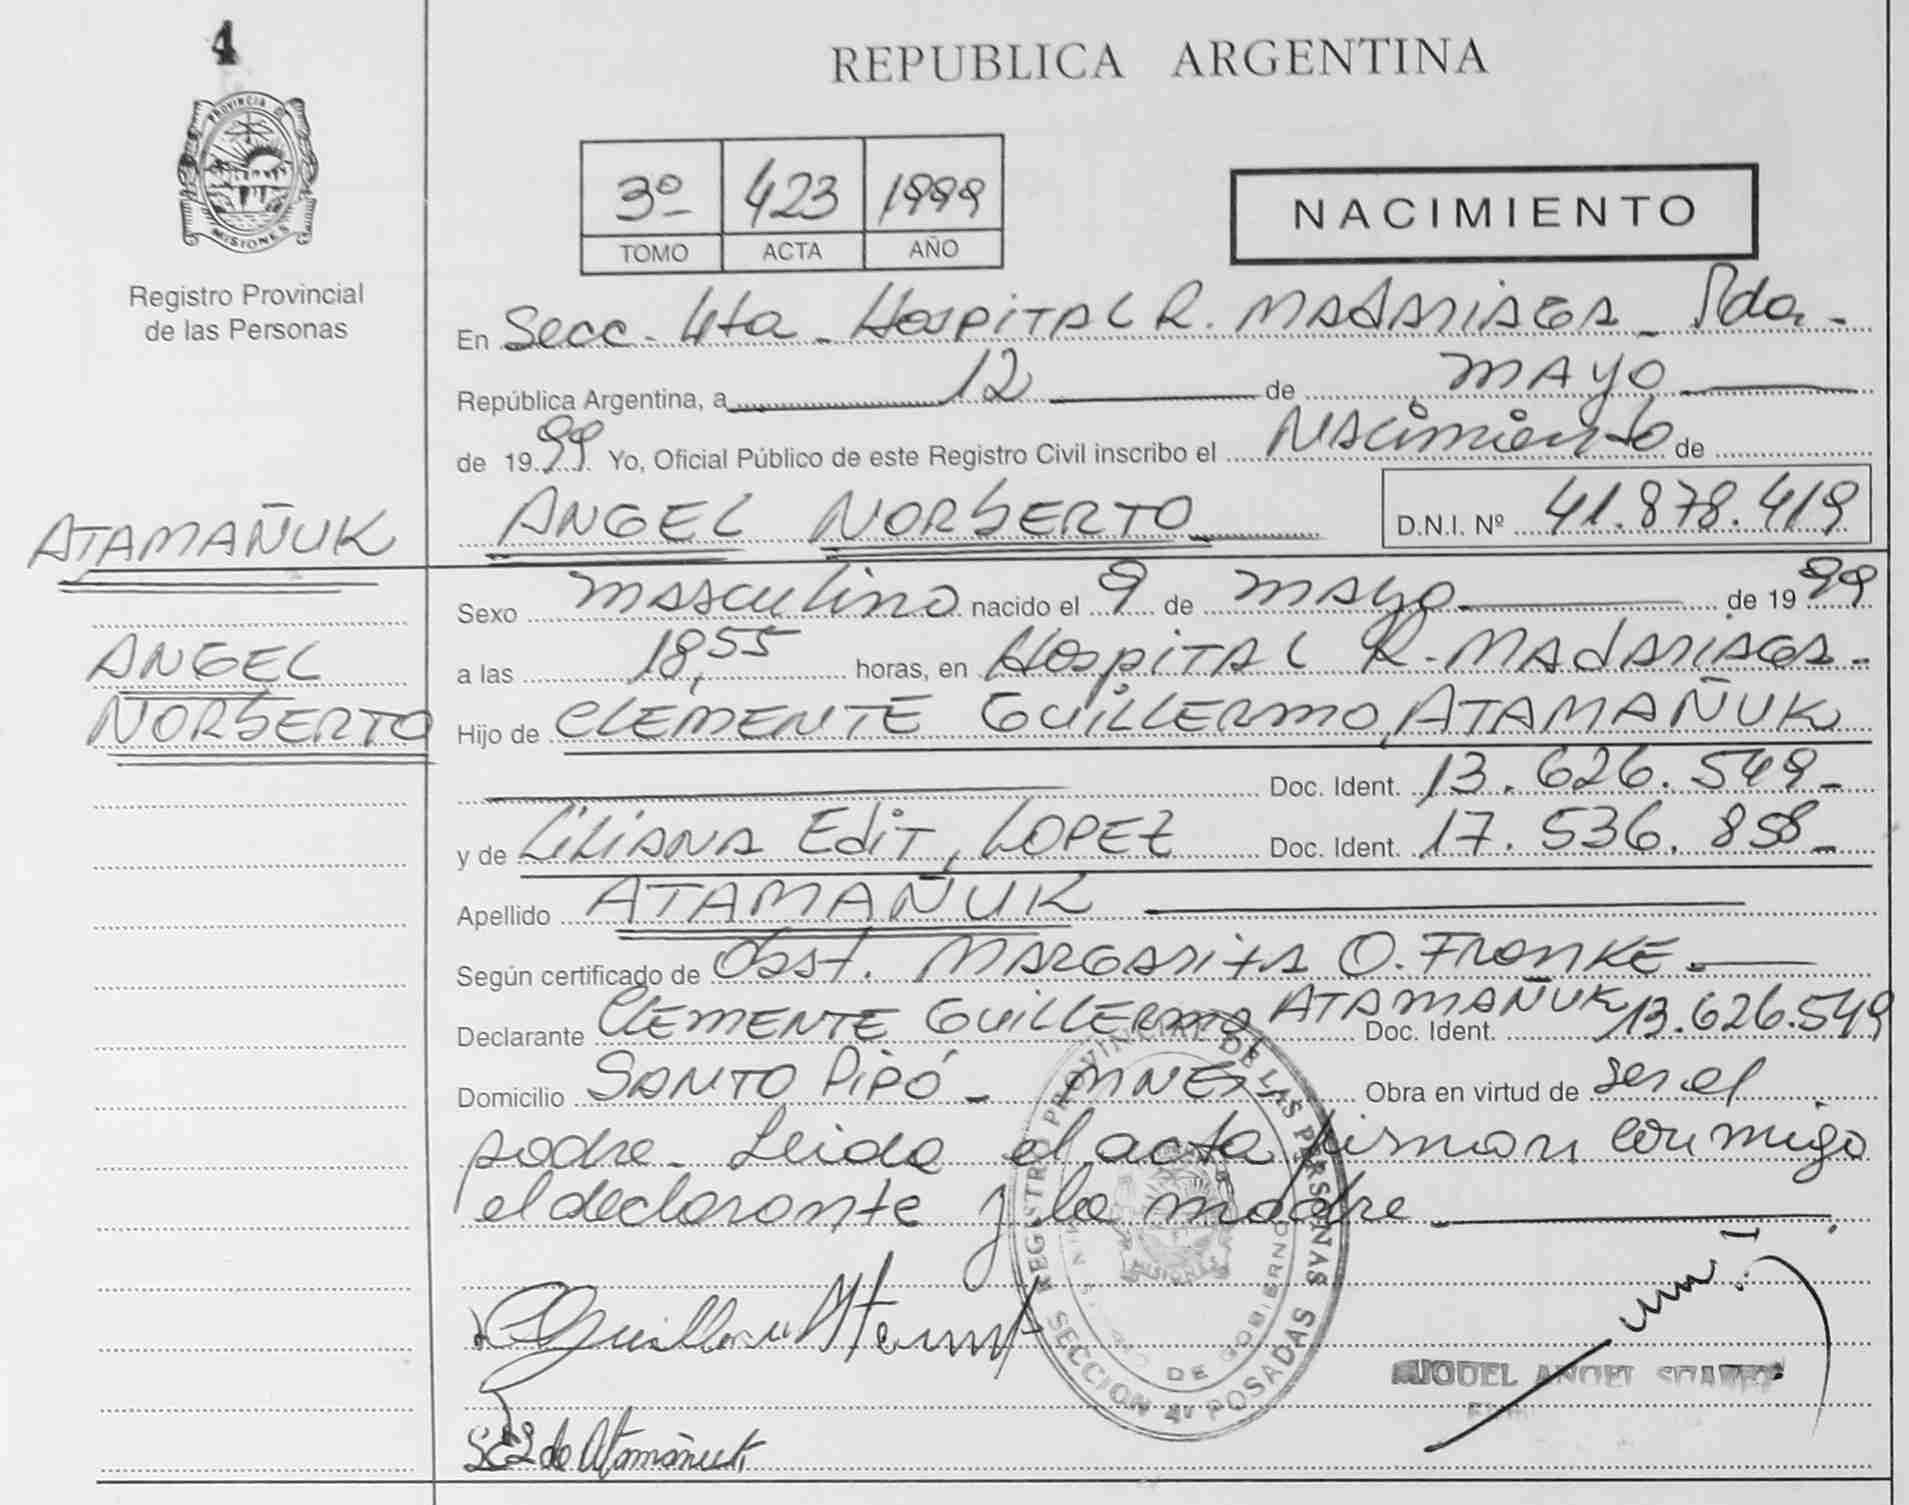 4
PROVINCIA DE
MISIONES
Registro Provincial
de las Personas
REPUBLICA ARGENTINA
3º 423 1999
TOMO ACTA AÑO
NACIMIENTO
En Secc. 4ta - Hospital R. Madariaga - Pdas -
República Argentina, a 12 de mayo
de 1999 Yo, Oficial Público de este Registro Civil inscribo el Nacimiento de
ATAMAÑUK
ANGEL NORBERTO D.N.I. Nº 41.878.419
Sexo masculino nacido el 9 de mayo de 1999
ANGEL
a las 18,55 horas, en Hospital R. Madariaga -
NORBERTO
Hijo de CLEMENTE GUILLERMO, ATAMAÑUK
Doc. Ident. 13.626.549-
y de LILIANA EDIT, LOPEZ Doc. Ident. 17.536.858-
Apellido ATAMAÑUK
Según certificado de Obst. MARGARITA O. FRANKE.-
Declarante CLEMENTE GUILLERMO ATAMAÑUK Doc. Ident. 13.626.549
Domicilio SANTO PIPÓ - MNES Obra en virtud de ser el
padre. Leida el acta firman conmigo
el declarante y la madre.
REGISTRO PROVINCIAL DE LAS PERSONAS
SECCION 4ª POSADAS
DE GOBIERNO
de Atamañuk